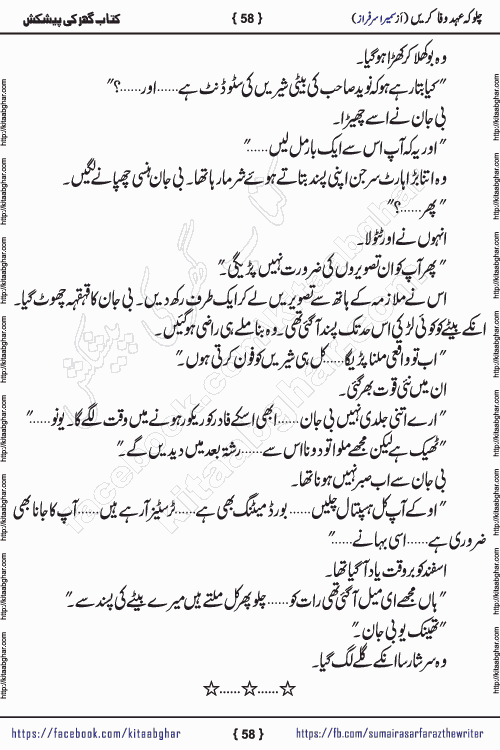 چلو کہ عہد وفا کریں (از سمیرا سرفراز) { 58 } کتاب گھر کی پیشکش
وہ بوکھلا کر کھڑا ہو گیا۔
"کیا بتا رہے ہو کہ نوید صاحب کی بیٹی شیریں کی سٹوڈنٹ ہے......اور......؟"
بی جان نے اسے چھیڑا۔
"اور یہ کہ آپ اس سے ایک بار مل لیں......"
وہ اتنا بڑا ہارٹ سرجن اپنی پسند بتاتے ہوئے شرما رہا تھا۔ بی جان ہنسی چھپانے لگیں۔
"پھر......؟"
انہوں نے اور ٹٹولا۔
"پھر آپ کو ان تصویروں کی ضرورت نہیں پڑیگی۔"
اس نے ملازمہ کے ہاتھ سے تصویریں لے کر ایک طرف رکھ دیں۔ بی جان کا قہقہہ چھوٹ گیا۔
انکے بیٹے کو کوئی لڑکی اس حد تک پسند آ گئی تھی۔ وہ بنا ملے ہی راضی ہو گئیں۔
"اب تو واقعی ملنا پڑیگا......کل ہی شیریں کو فون کرتی ہوں۔"
ان میں نئی قوت بھر گئی۔
"ارے اتنی جلدی نہیں بی جان......ابھی اسکے فادر کو ریکور ہونے میں وقت لگے گا۔ یو نو......"
"ٹھیک ہے لیکن مجھے ملوا تو دو نا اس سے......رشتہ بعد میں دیدیں گے۔"
بی جان سے اب صبر نہیں ہونا تھا۔
"اوکے آپ کل ہسپتال چلیں......بورڈ میٹنگ بھی ہے......ٹرسٹیز آ رہے ہیں......آپ کا جانا بھی
ضروری ہے......اسی بہانے......"
اسفند کو بروقت یاد آ گیا تھا۔
"ہاں مجھے ای میل آ گئی تھی رات کو......چلو پھر کل ملتے ہیں میرے بیٹے کی پسند سے۔"
"تھینک یو بی جان۔"
وہ سرشار سا انکے گلے لگ گیا۔
☆......☆......☆
https://facebook.com/kitaabghar { 58 } https://fb.com/sumairasarfarazthewriter
http://kitaabghar.com
http://kitaabghar.com
http://kitaabghar.com
http://kitaabghar.com
http://kitaabghar.com
http://kitaabghar.com
http://kitaabghar.com
http://kitaabghar.com
کتاب گھر کی پیشکش
facebook.com/kitaabghar
kitaabghar.com